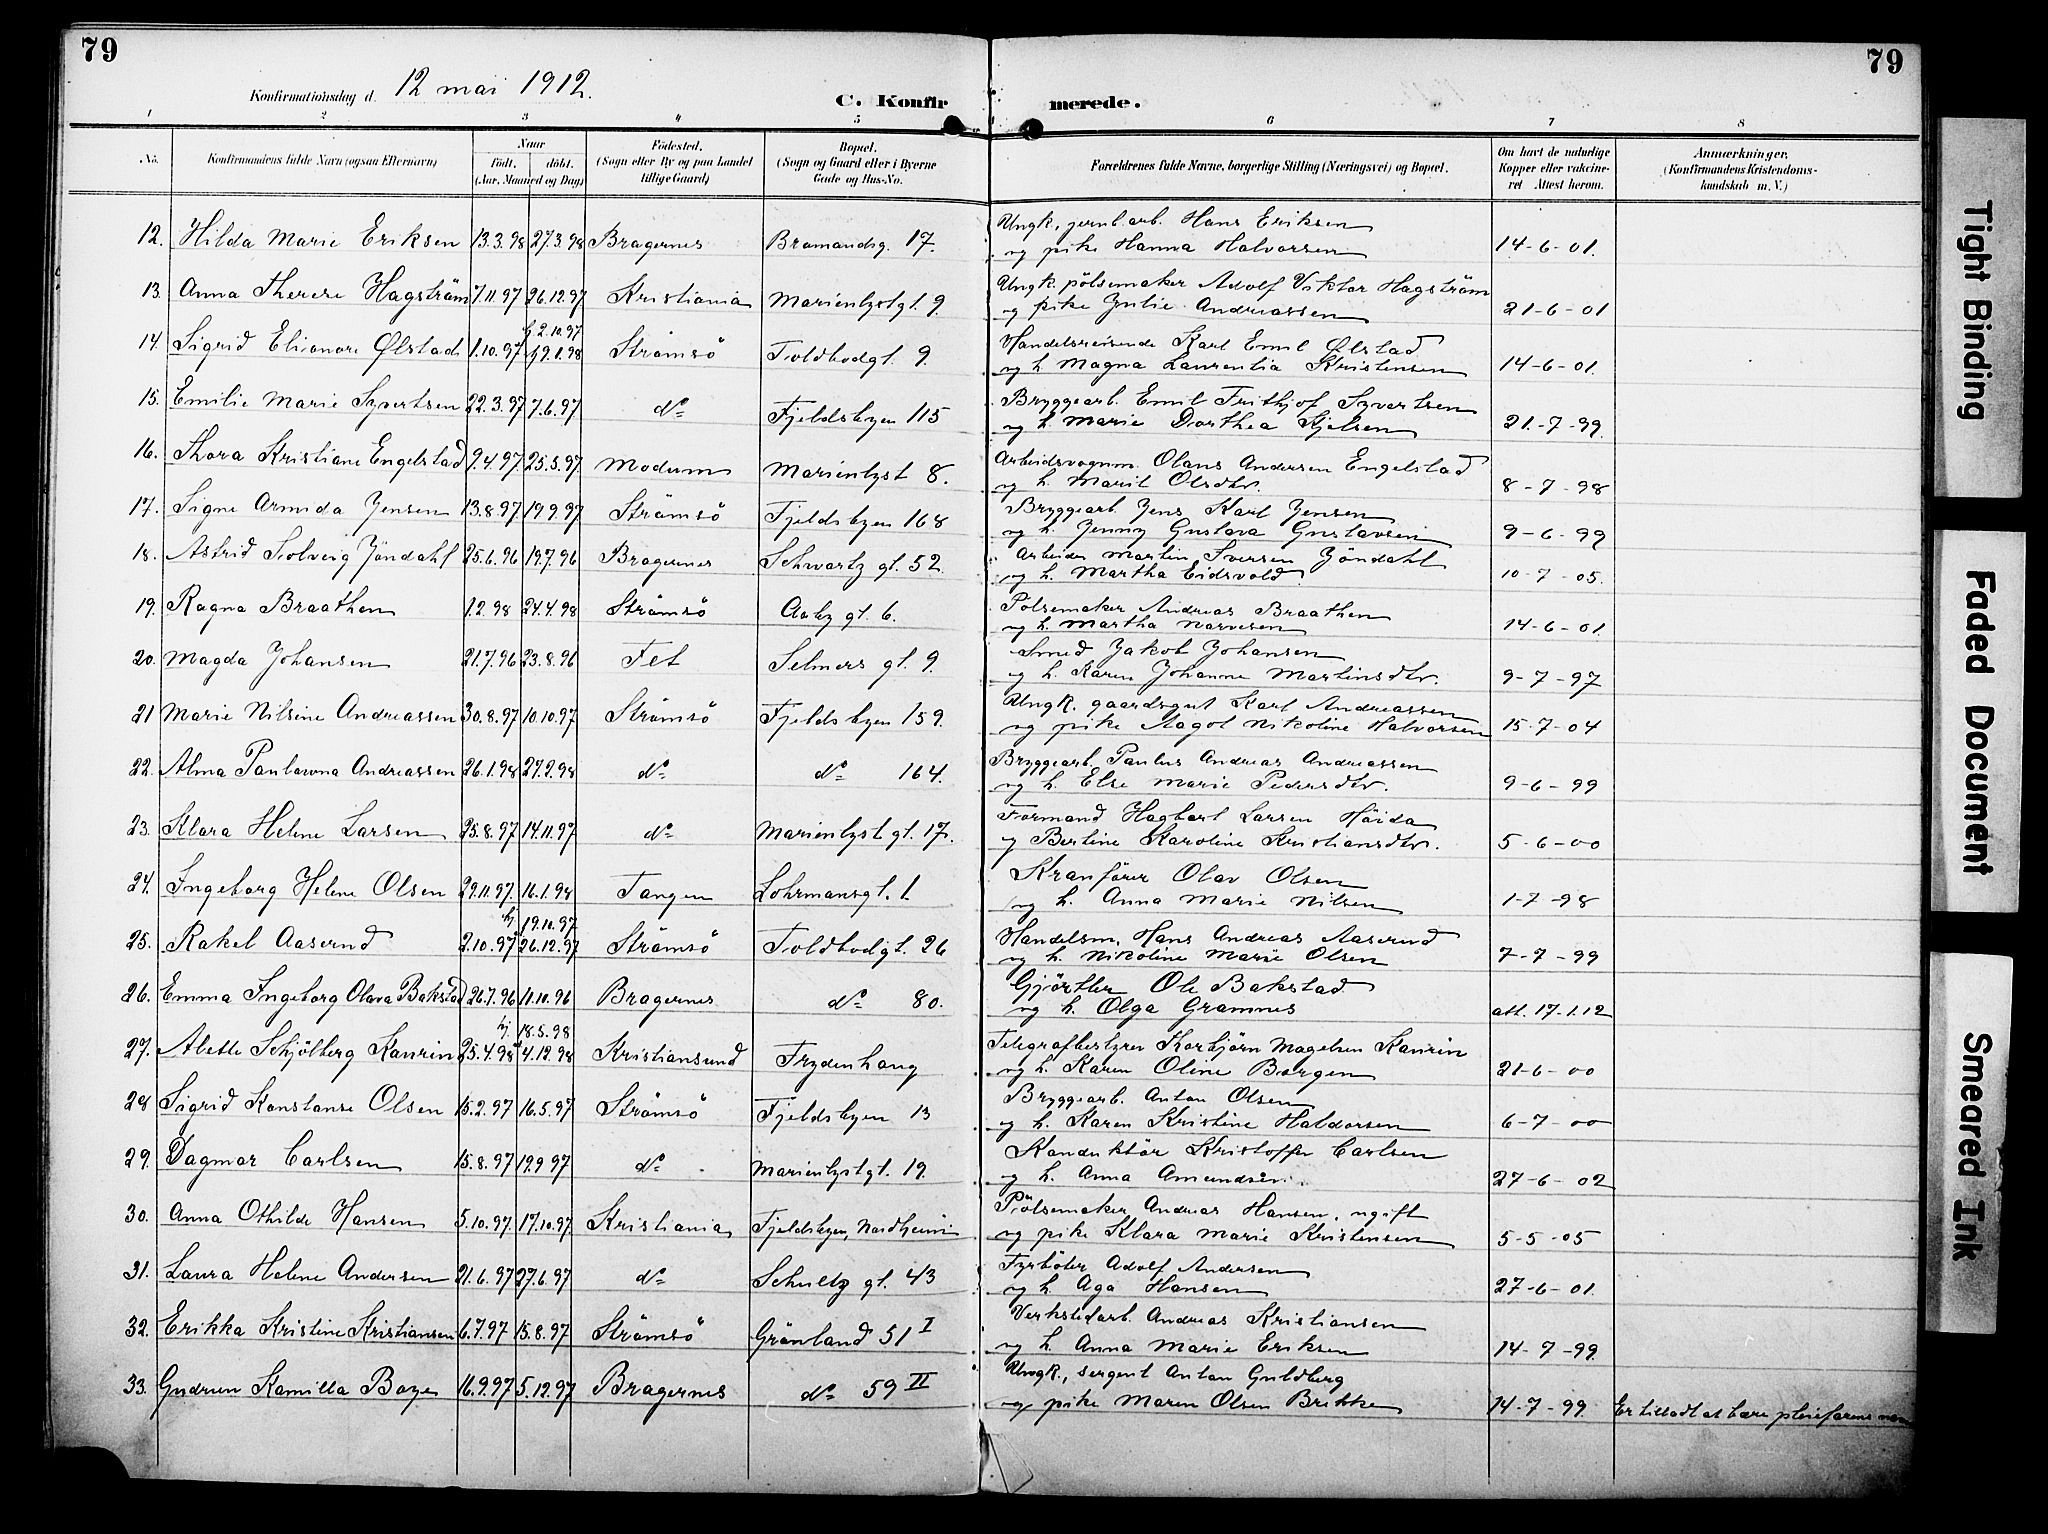 79
79
Konfirmationsdag d. 12 mai 1912.
C. Konfirmerede.
1 2 3 4 5 6 7 8
No. Konfirmandens fulde Navn (ogsaa Efternavn) Naar født. døbt. (Aar, Maaned og Dag) Fødested. (Sogn eller By og paa Landet tillige Gaard) Bopæl. (Sogn og Gaard eller i Byerne Gade og Hus-No. Forældrenes fulde Navne, borgerlige Stilling (Næringsvei) og Bopæl. Om havt de naturlige Kopper eller vakcineret Attest herom. Anmærkninger. (Konfirmandens Kristendomskundskab m. V.)
12. Hilda Marie Eriksen 13.3.98 27.3.98 Bragernes Bromandsg. 17. Ungk. jernb.arb. Hans Eriksen
og pike Hanna Halvorsen 14-6-01.
13. Anna Therese Hagström 7.11.97 26.12.97 Kristiania Marienlystgt. 9. Ungk. pölsemaker Adolf Viktor Hagström
og pike Julie Andreassen 21-6-01
14. Sigrid Elionore Ølstad 1.10.97 2.10.97 9.1.98 Strömsö Toldbodgt. 9. Handelsreisende Karl Emil Ølstad
og h. Magna Laurentia Kristensen 14-6-01.
15. Emilie Marie Syvertsen 22.3.97 7.6.97 do Fjeldsbyen 115 Bryggearb. Emil Frithjof Syvertsen
og h. Marie Dorthea Kjelsen 21-7-99.
16. Thora Kristiane Engelstad 9.4.97 25.5.97 Modum Marienlyst 8. Arbeidsvognm. Olaus Andersen Engelstad
og h. Marit Olsdtr. 8-7-98
17. Signe Armida Jensen 13.8.97 19.9.97 Strömsö Fjeldsbyen 168 Bryggearb. Jens Karl Jensen
og h. Jenny Gustava Gustavsen 9-6-99
18. Astrid Solveig Jöndahl 25.6.96 19.7.96 Bragernes Schwartz gt. 52. Arbeider Martin Iversen Jöndahl
og h. Martha Eidsvold 10-7-05.
19. Ragna Braathen 1.2.98 24.4.98 Strömsö Aaby gt. 6. Pölsemaker Andreas Braathen
og h. Martha Narvesen 14-6-01.
20. Magda Johansen 21.7.96 23.8.96 Fet Selmers gt. 9. Smed Jakob Johansen
og h. Karen Johanne Martinsdtr. 9-7-97
21 Marie Nilsine Andreassen 30.8.97 10.10.97 Strömsö Fjeldsbyen 159. Ungk. gaardsgut Karl Andreassen
og pike Aagot Nikoline Halvorsen 15-7-04
22. Alma Paulowna Andreassen 26.1.98 27.2.98 do do 164. Bryggearb. Paulus Andreas Andreassen
og h. Else Marie Pedersdtr. 9-6-99
23. Klara Helene Larsen 25.8.97 14.11.97 do Marienlyst gt. 17. Formand Hagbart Larsen Höida
og Bertine Karoline Kristiansdtr. 5-6-00
24. Ingeborg Helene Olsen 29.11.97. 16.1.98 Tangen Lohrmansgt. 1. Kranförer Olav Olsen
og h. Anna Marie Nilsen 1-7-98
25. Rakel Aaserud 2.10.97 hj. 19.10.97 26.12.97 Strömsö Toldbodgt. 26 Handelsm. Hans Andreas Aaserud
og h. Nikoline Marie Olsen 7-7-99
26. Emma Ingeborg Olava Bakstad 26.7.96 11.10.96 Bragernes do 80. Gjörtler Ole Bakstad
og h. Olga Gramnes att. 17.1.12
27. Alette Schjölberg Kanrin 25.4.98 hj. 18.5.98 4.12.98 Kristiansund Frydenhaug Telegrafbestyrer Torbjörn Magelsen Kanrin
og h. Karen Oline Borgen 21-6-00
28 Sigrid Konstanse Olsen 15.2.97 16.5.97 Strömsö Fjeldsbyen 13 Bryggearb. Anton Olsen
og h. Karen Kristine Haldorsen 6-7-00
29. Dagmar Carlsen 15.8.97 19.9.97 do Marienlystgt. 19. Konduktör Kristoffer Carlsen
og h. Anna Amundsen 27-6-02
30. Anna Othilde Hansen 5.10.97. 17.10.97. Kristiania Fjeldsbyen, Nordheim Pölsemaker Andreas Hansen, ugift
og pike Klara Marie Kristensen 5-5-05
31. Laura Helene Andersen 21.6.97 27.6.97 do Schultz gt. 43 Fyrböter Adolf Andersen
og h. Aga Hansen 27-6-01.
32. Erikka Kristine Kristiansen 6.7.97 15.8.97 Strömsö Grönland 51 I Verkstedarb. Andreas Kristiansen
og h. Anna Marie Eriksen 14-7-99.
33. Gudrun Kamilla Boye 16.9.97 5.12.97 Bragernes do 59 II Ungk., sergent Anton Guldberg
og pike Maren Olsen Brekke 14-7-99. Er tilladt at bære pleiefarens navn
Tight Binding
Faded Document
Smeared Ink